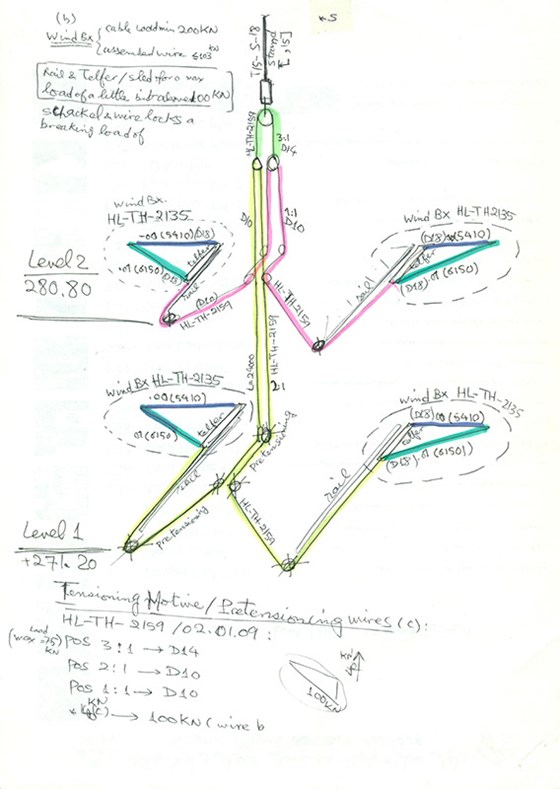 (b)
Wind Bx { cable load min 200KN
assembled wire ≤103 KN
Rail & Telfer/sled for a max
load of a little bit above 100 KN
shackel & wire locks a
breaking load of
T/S-S-18
Strand
[S/S]
HL-TH-2159
3:1
D14
D10
1:1
D10
Wind Bx.
HL-TH-2135
-00 (5410) (D18)
.01 (6150) (D18)
telfer
rail
(D10)
HL-TH-2159
Level 2
280.80
Wind Bx HL-TH2135
(D18) .00 (5410)
telfer
(D18) .01 (6150)
rail
HL-TH-2159
HL-TH-2159
2:1
Wind Bx HL-TH-2135
.00 (5410)
.01 (6150)
telfer
rail
pretensioning
pretensioning
HL-TH-2159
Wind Bx HL-TH-2135
(D18) .00 (5410)
telfer
(D18) .01 (6150)
rail
Level 1
+271.20
Tensioning Motive/Pretensioning wires (c):
HL-TH-2159/02.01.09:
(max load =75 KN)
POS 3:1 → D14
POS 2:1 → D10
POS 1:1 → D10
→ 100KN (wire b
KN
100KN